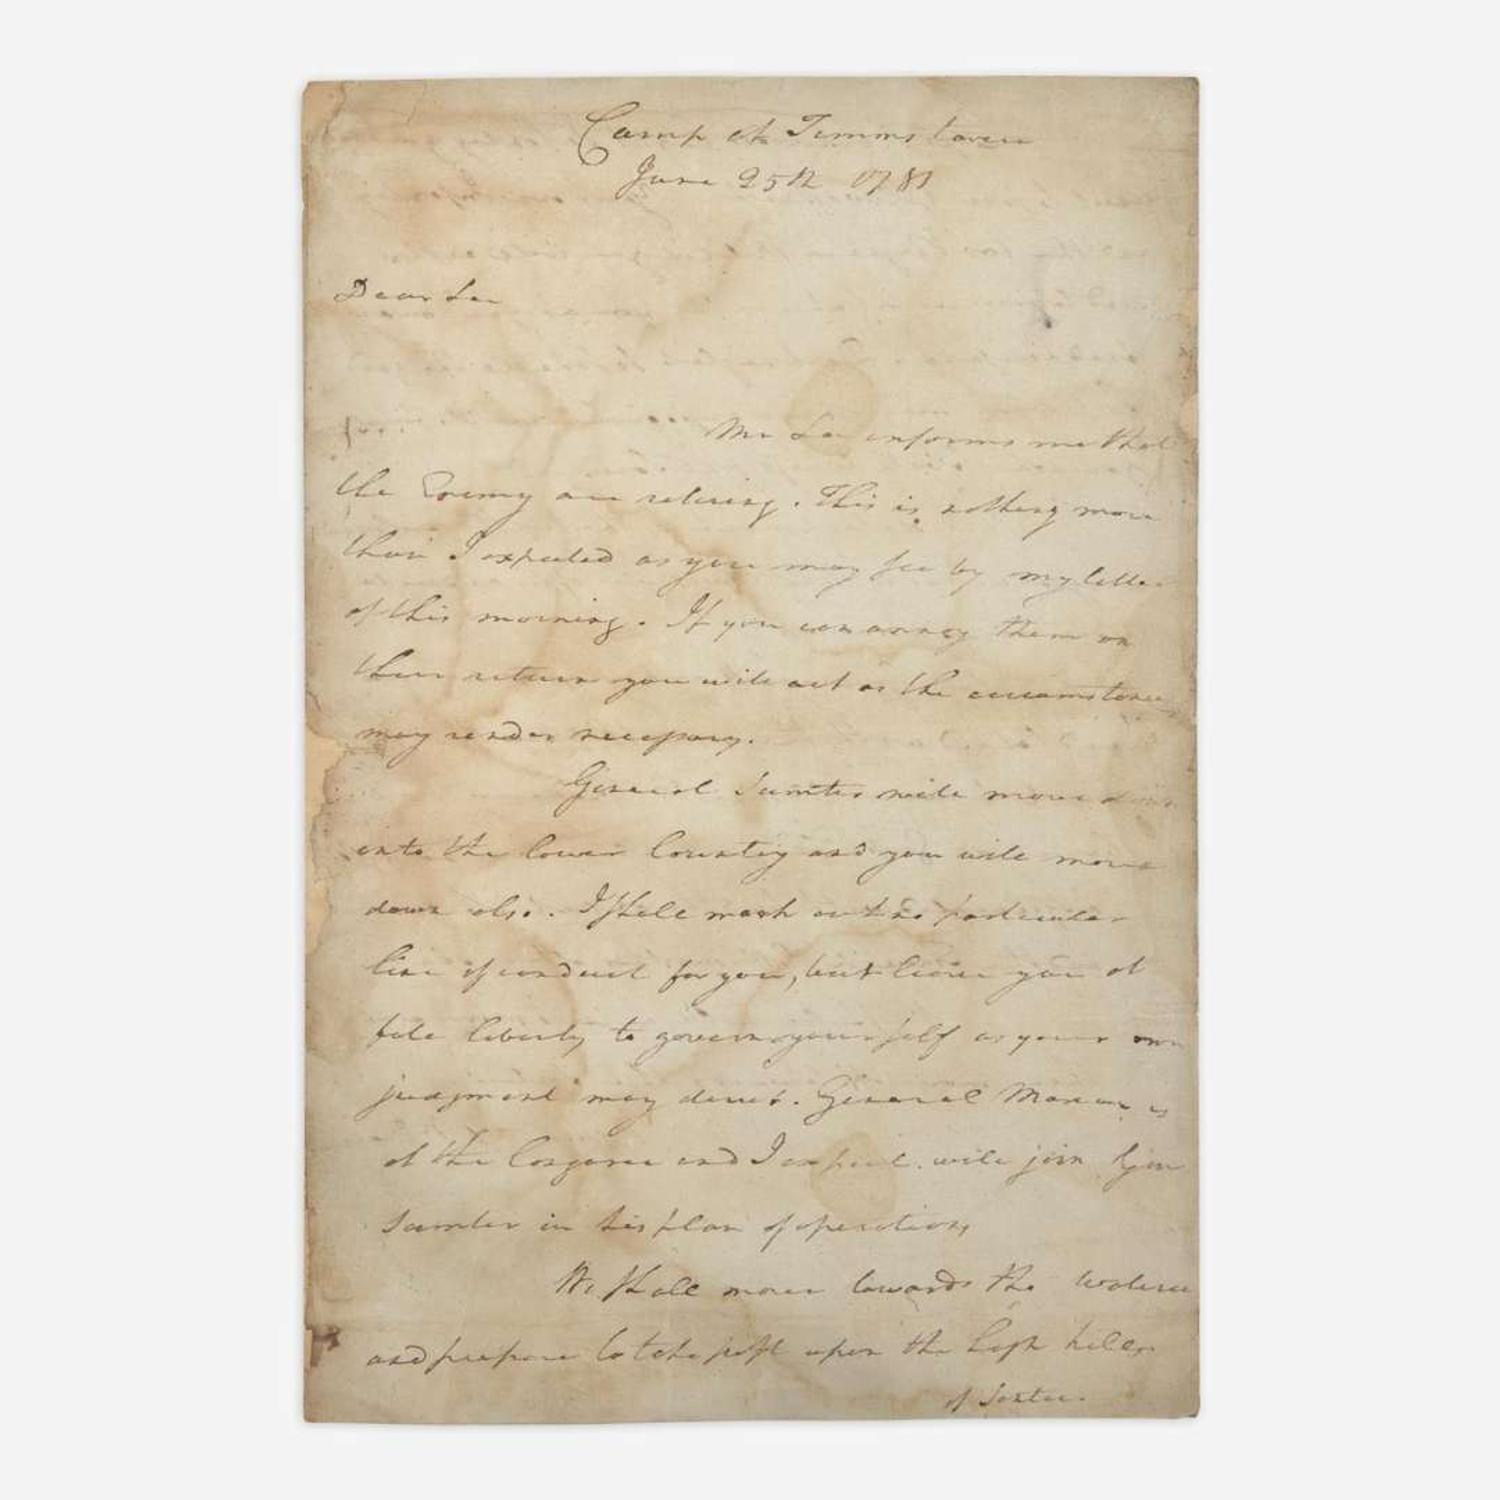 Camp at Timms tavern
June 25th 1781
Dear Sir
Mr Le informs me that
the Enemy are retiring. This is nothing more
than I expected as you may see by my letter
of this morning. If you can annoy them on
their return you will act as the circumstances
may render necessary.
General Sumter will move down
into the lower Country and you will move
down also. I shall mark out no particular
line of conduct for you, but leave you at
full liberty to govern yourself as your own
judgment may direct. General Marion is
at the Congaree and I expect will join Gen
Sumter in his plan of operations
We shall move towards the Wateree
and prepare to take post upon the high hills
of Santee.